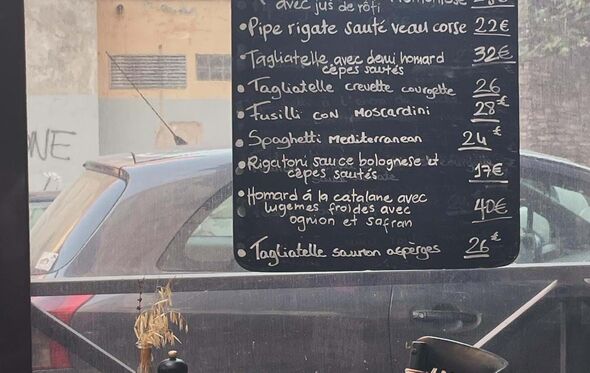 avec jus de rôti
• Pipe rigate sauté veau corse 22€
• Tagliatelle avec demi homard 32€
cèpes sautés
• Tagliatelle crevette courgette 26
• Fusilli con Moscardini 28€
• Spaghetti Mediterranean 24€
• Rigatoni sauce bolognese et
cèpes sautés 17€
• Homard á la catalane avec
lugemes froides avec 40€
ognion et safran
• Tagliatelle saumon aspèrges 26€
NE